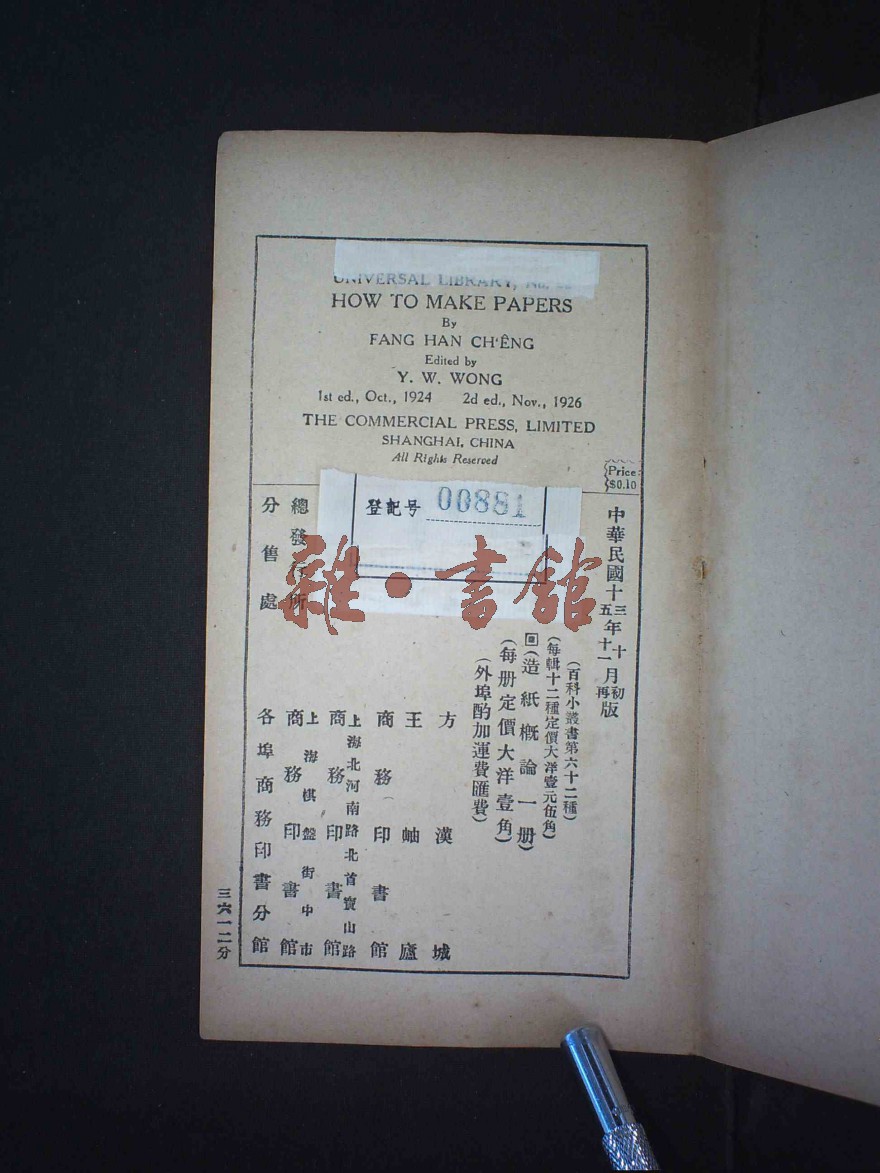 UNIVERSAL LIBRARY, No.
HOW TO MAKE PAPERS
By
FANG HAN CH'ÊNG
Edited by
Y. W. WONG
1st ed., Oct., 1924 2d ed., Nov., 1926
THE COMMERCIAL PRESS, LIMITED
SHANGHAI, CHINA
All Rights Reserved
Price
$0.10
登記号 00881
雜·書館
中華民國十三年十月初版
五年十一月再
(百科小叢書第六十二種)
(每輯十二種定價大洋壹元伍角)
回(造紙概論一册)
(每册定價大洋壹角)
(外埠酌加運費匯費)
方漢城
王岫廬
商務印書館
上海北河南路北首寶山路
總發行所 商務印書館
上海棋盤街中市
商務印書館
分售處 各埠商務印書分館
三六一二分